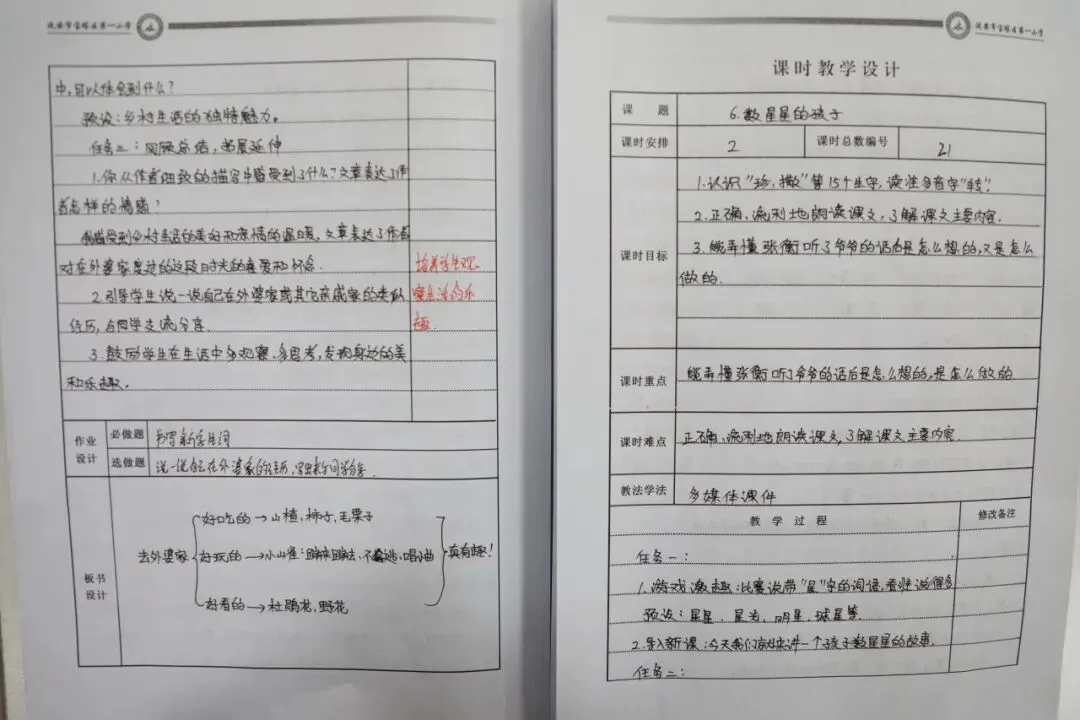 延安市宝塔区第一小学
中,可以体会到什么?
预设:乡村生活的独特魅力。
任务三:回顾总结,拓展延伸
1.你从作者细致的描写中感受到了什么?文章表达了作
者怎样的情感?
感受到乡村生活的美好和亲情的温暖,文章表达了作者
对在外婆家度过的这段时光的喜爱和怀念.
2.引导学生说一说自己在外婆家或其它亲戚家的类似
经历,与同学交流分享.
3.鼓励学生在生活中多观察、多思考,发现身边的美
和乐趣。
培养学生观
察生活的乐
趣.
作业设计
必做题 书写新学生词
选做题 说一说自己在外婆家的经历,写出来与同学分享.
板书设计
去外婆家
好吃的→山楂,柿子,毛栗子
好玩的→小山雀:蹦来蹦去、不逃、唱小曲
好看的→杜鹃花,野花
真有趣!
延安市宝塔区第一小学
课时教学设计
课题 6.数星星的孩子
课时安排 2 课时总数编号 21
课时目标
1.认识“珍,撒”等15个生字,读准多音字“转”.
2.正确、流利地朗读课文,了解课文主要内容.
3.能弄懂张衡听了爷爷的话后是怎么想的,又是怎么
做的.
课时重点 能弄懂张衡听了爷爷的话后是怎么想的,是怎么做的
课时难点 正确、流利地朗读课文,了解课文主要内容.
教法学法 多媒体课件
教学过程 修改备注
任务一:
1.游戏激趣:比赛说带“星”字的词语,看谁说得多
预设:星星、星光、明星、球星等.
2.导入新课:今天我们就来讲一个孩子数星星的故事.
任务二: